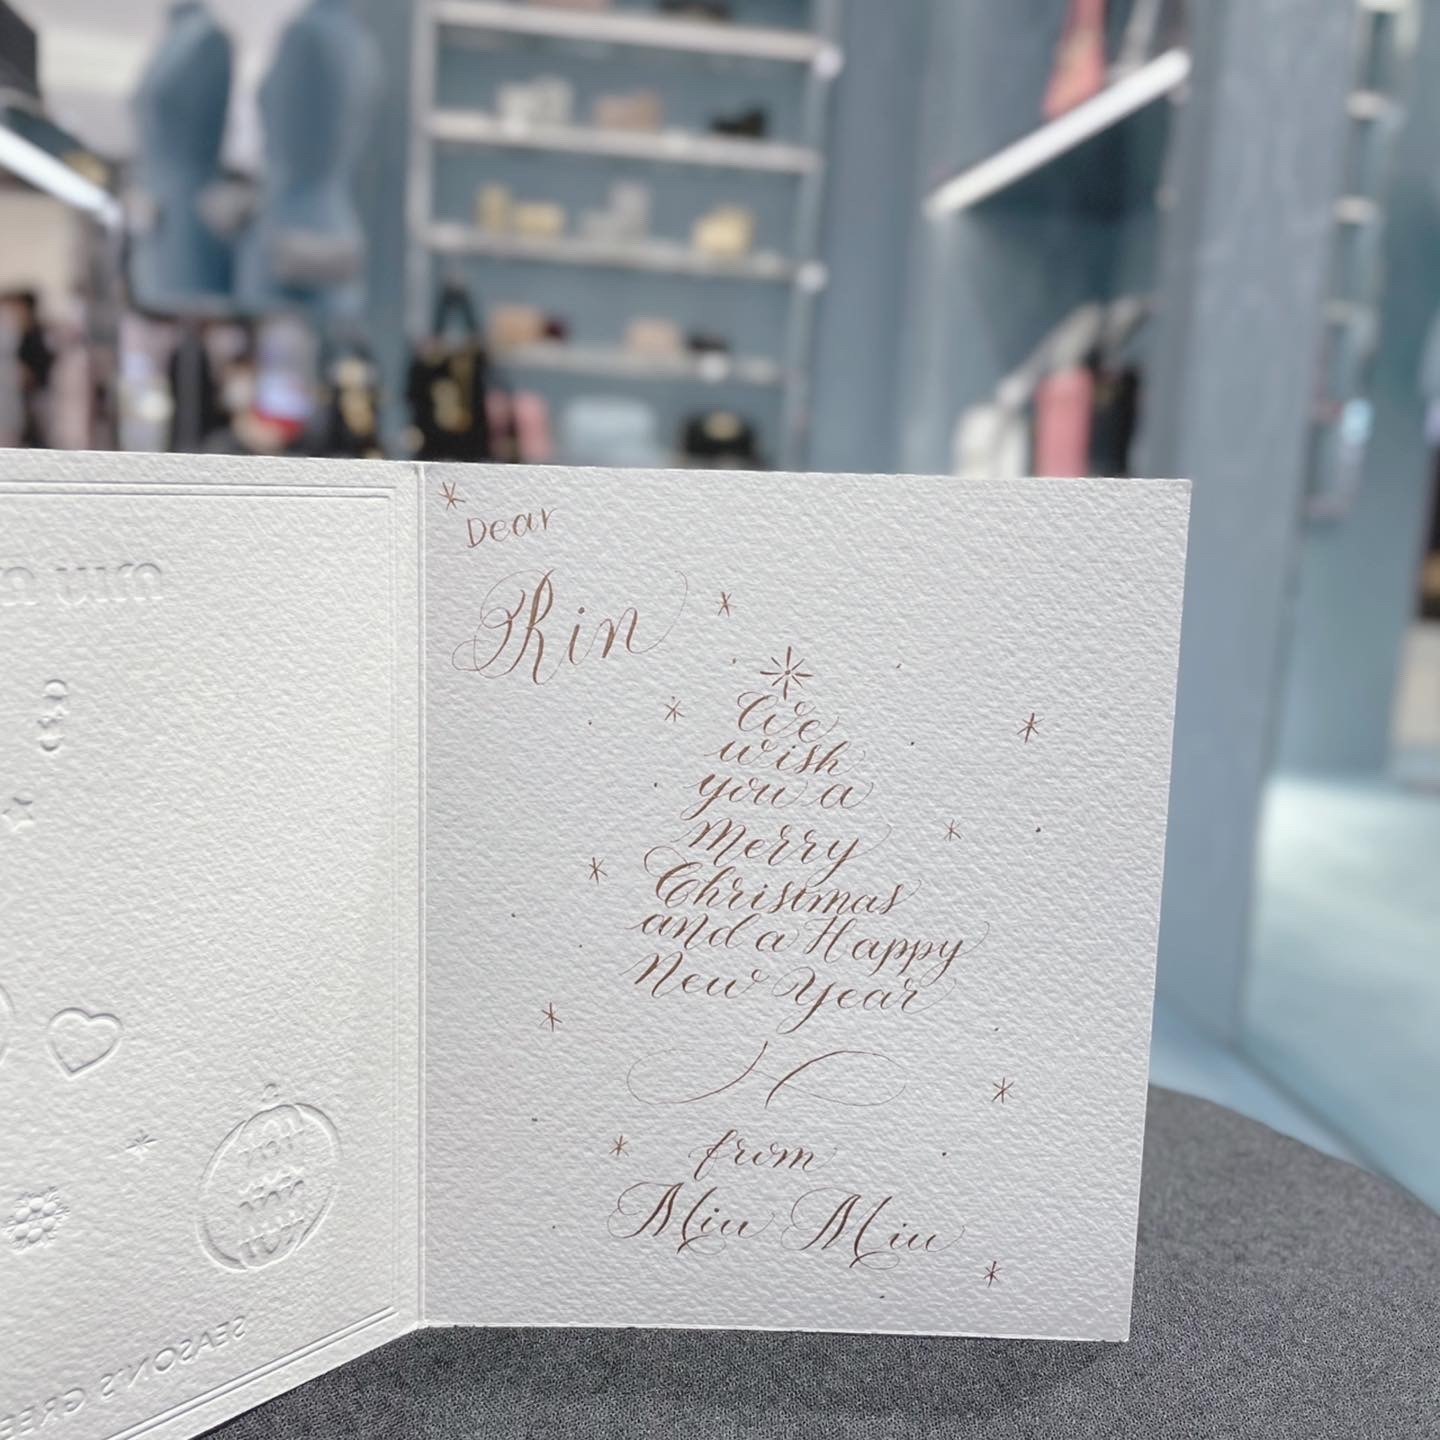 Dear
Rin
We
wish
you a
Merry
Christmas
and a Happy
New Year
from
Miu Miu
SEASON'S GREE